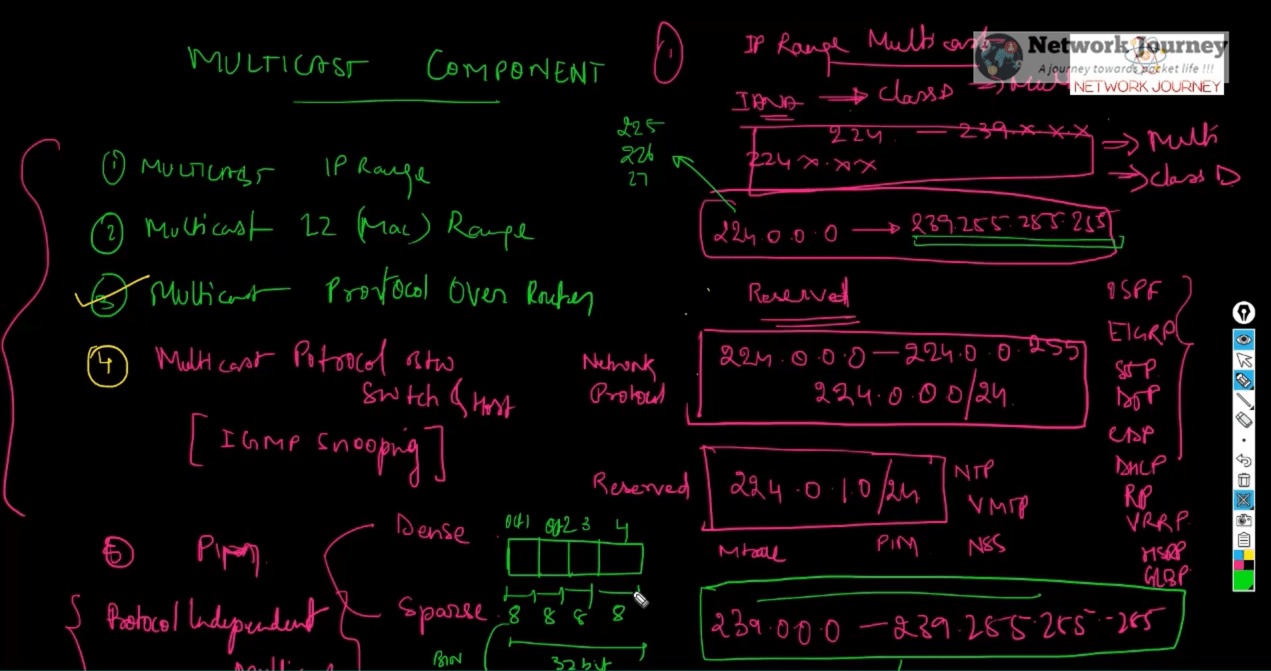 MULTICAST COMPONENT
① MULTICAST IP Range
② Multicast L2 (Mac) Range
③ Multicast Protocol Over Router
④ Multicast Potrocol Btw
Switch & Host
[ IGMP Snooping ]
⑤ Pim
Protocol Independent
Dense
Sparse
oct1 oct2 3 4
8 8 8 8
32 bit
BIN
① IP Range Multicast
Network Journey
A journey towards packet life !!!
NETWORK JOURNEY
IANA → Class D →
225
226
27
224 — 239.x.x.x
224.x.x.x
→ Multi
→ Class D
224.0.0.0 → 239.255.255.255
Reserved
Network
Protocol
224.0.0.0 — 224.0.0.255
224.0.0.0/24
OSPF
EIGRP
STP
DTP
CDP
DHCP
RIP
VRRP
HSRP
GLBP
Reserved
224.0.1.0/24
NTP
VMTP
PIM
NSS
239.0.0.0 — 239.255.255.255